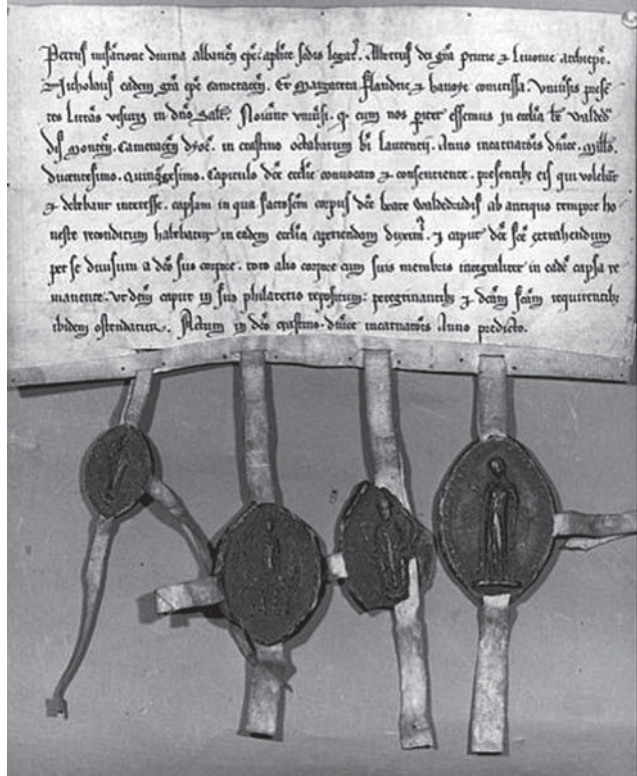 Petrus miſatione divina albaneñ epc aplice ſedis legat. Albertus dei gra pruſcie ⁊ Livonie archiepc.
Nicholaus eadem gra epc cameraceñ. Et Margareta flandrie ⁊ hanoye comitiſſa. Univſis preſē
tes litt̄as viſuris in dn̄o salt̄. Nov̄int univſi. q̃ cum nos p̄t̄er eſſemus in eccl̄ia bt̄e Walded
dis Monteñ. Cameraceñ dyoc̄. in craſtino octabarum bi Laurencij. Anno incarnatōis dn̄ice. Mill̄o.
ducenteſimo. quinq̃geſimo. Capitulo dc̄e eccl̄ie convocato ⁊ conſentiente. preſentib; eis qui voleb̄t
⁊ debebant intereſſe. capſam in qua ſacroſcm̄ corpus dc̄e beate Waldedrudis ab antiquo tempore ho
neſte reconditum habebatur in eadem eccl̄ia aperiendam duxim᷒. ⁊ caput dc̄e ſc̄e extrahendum
per ſe diviſum a dc̄o ſuo corpore. toto alio corpore cum ſuis membris integraliter in cadē capſa re
manente. Ut dc̄m caput in ſuo philaterio repoſitum: peregrinantib; ⁊ dc̄am ſc̄am requirentib;
ibidem oſtendatur. Actum in dc̄o craſtino. dn̄ice incarnatōis Anno predicto.